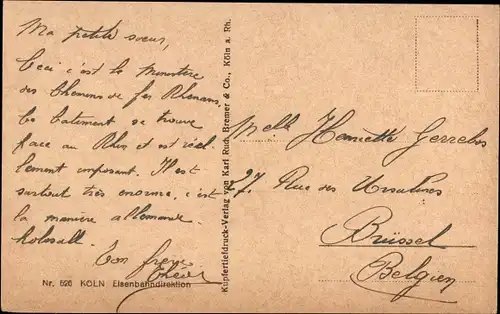 Ma petite sœur,
Ceci c'est le Ministère
des Chemins de fer Rhénans.
Le batiment se trouve
face au Rhin et est réel-
lement imposant. Il est
surtout très enorme, c'est
la manière allemande
kolosall.
Ton frère
Nr. 526 KÖLN Eisenbahndirektion
Kupfertiefdruck-Verlag von Karl Rud. Bremer & Co., Köln a. Rh.
Melle Henriette
27. Rue des Ursulines
Brüssel
Belgien